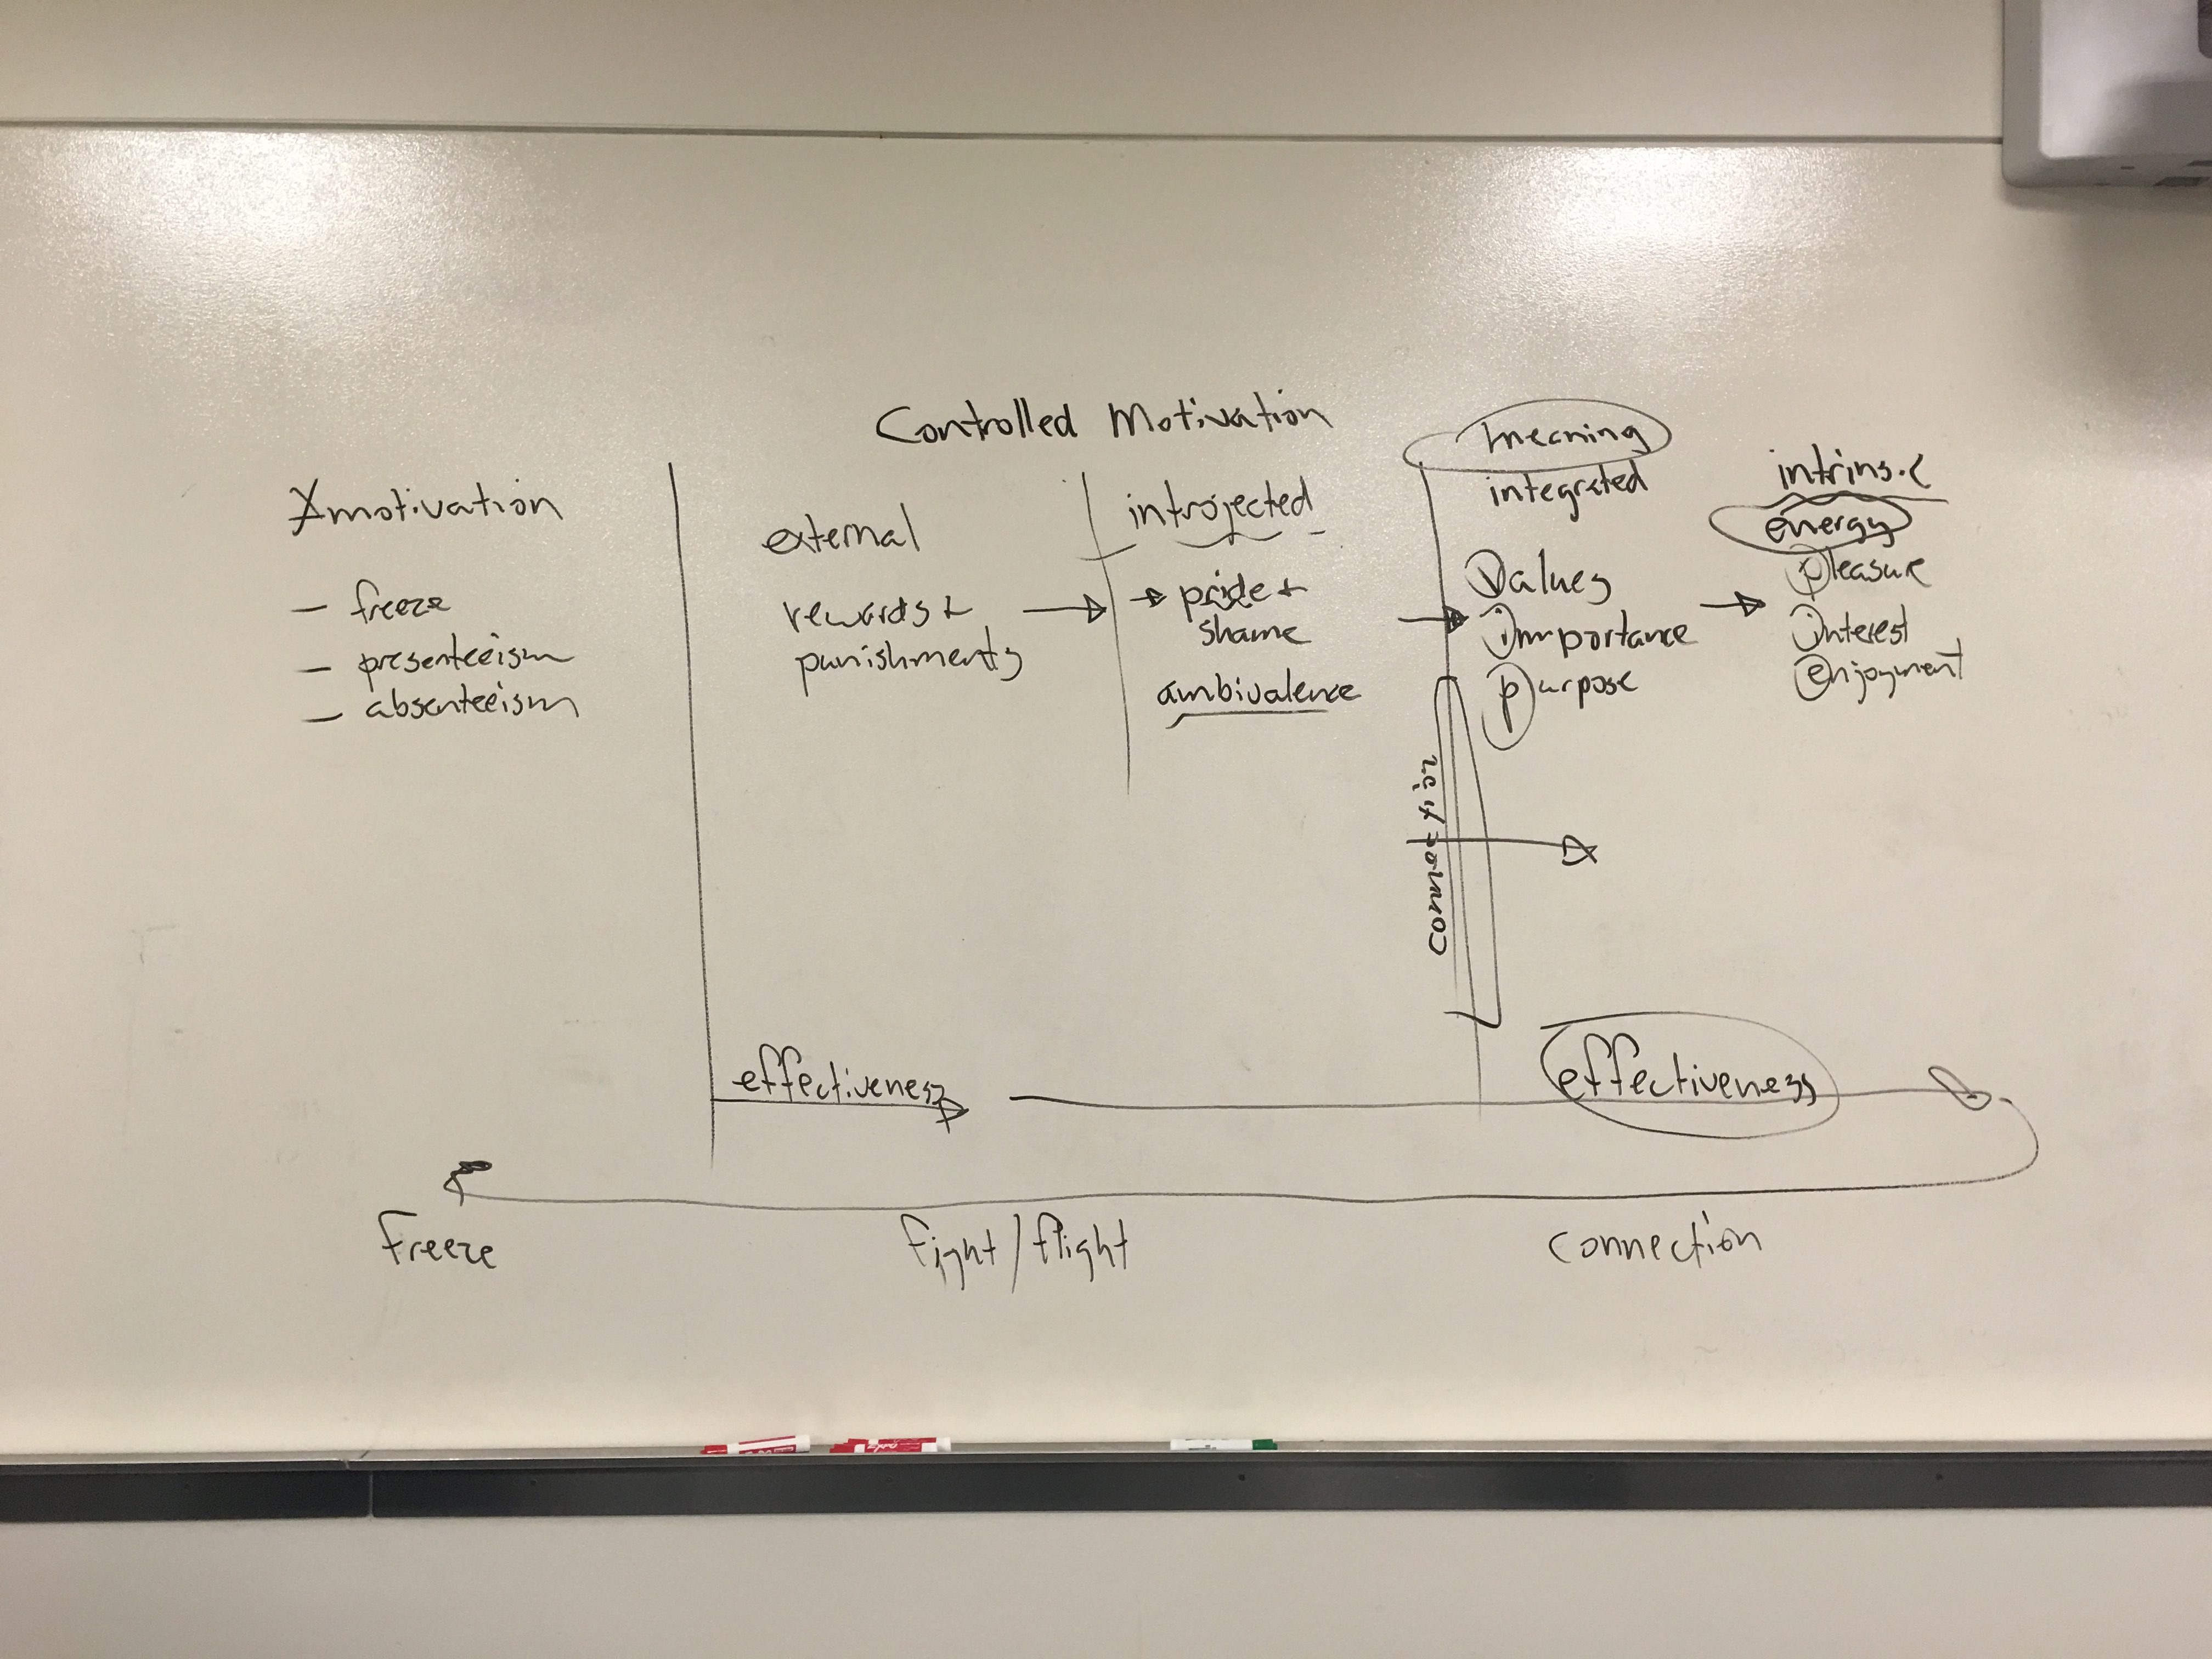 Controlled Motivation
Amotivation
- freeze
- presenteeism
- absenteeism
external
rewards +
punishments
introjected
pride +
shame
ambivalence
meaning
integrated
Values
importance
purpose
intrinsic
energy
pleasure
interest
enjoyment
connection
effectiveness
effectiveness
freeze
fight/flight
connection